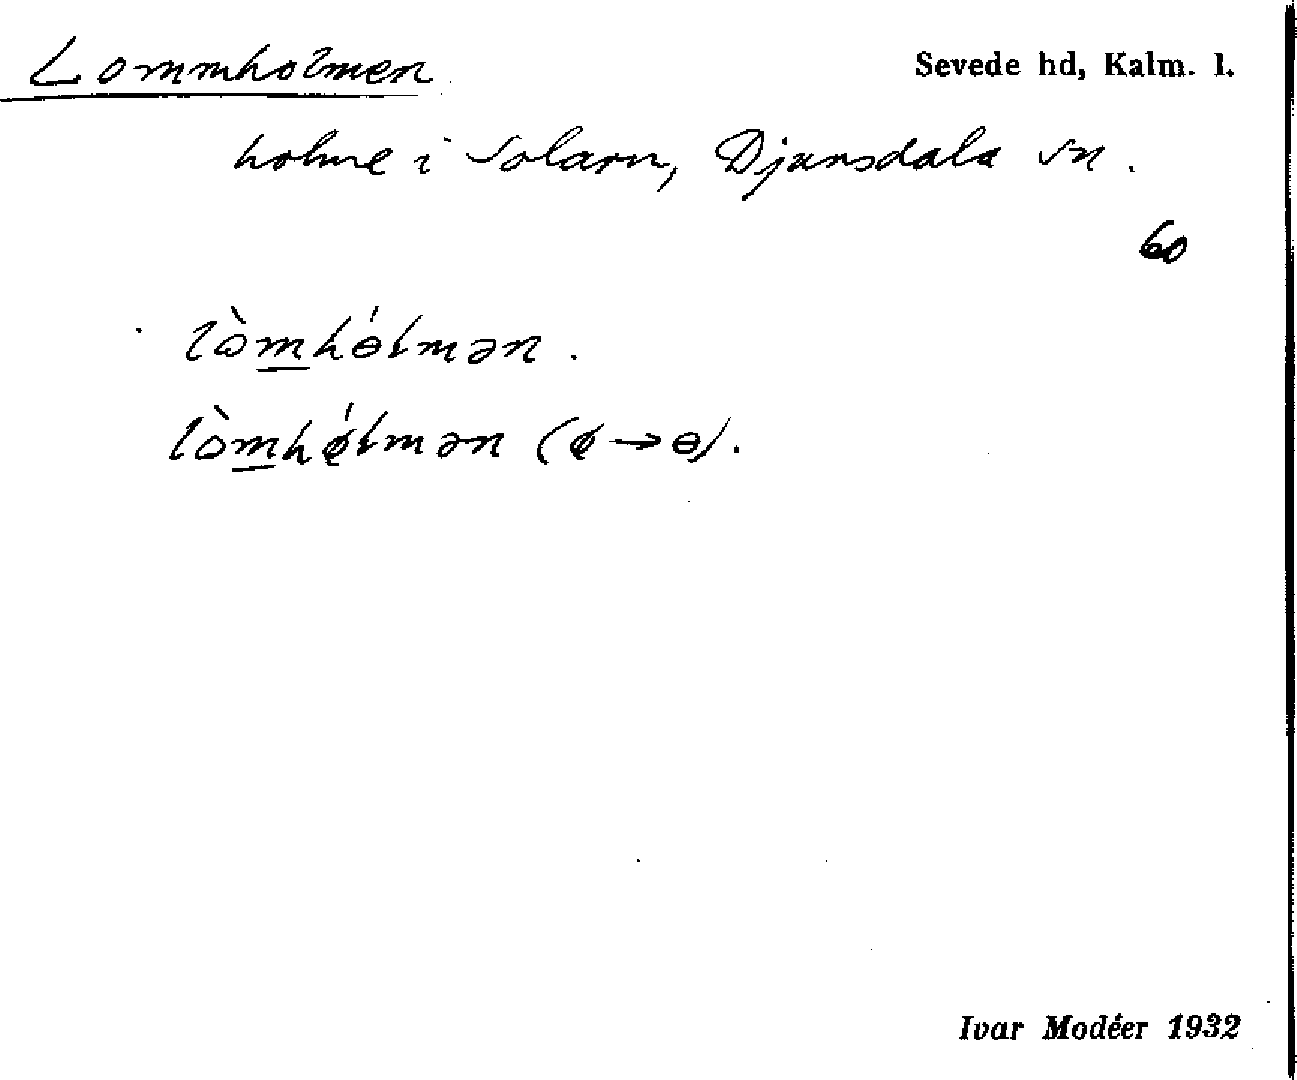 Lommholmen
Sevede hd, Kalm. l.
holme i Solarn, Djursdala sn.
60
lòmhɵ́lmən.
lòmhǿlmən (ø→ɵ).
Ivar Modéer 1932